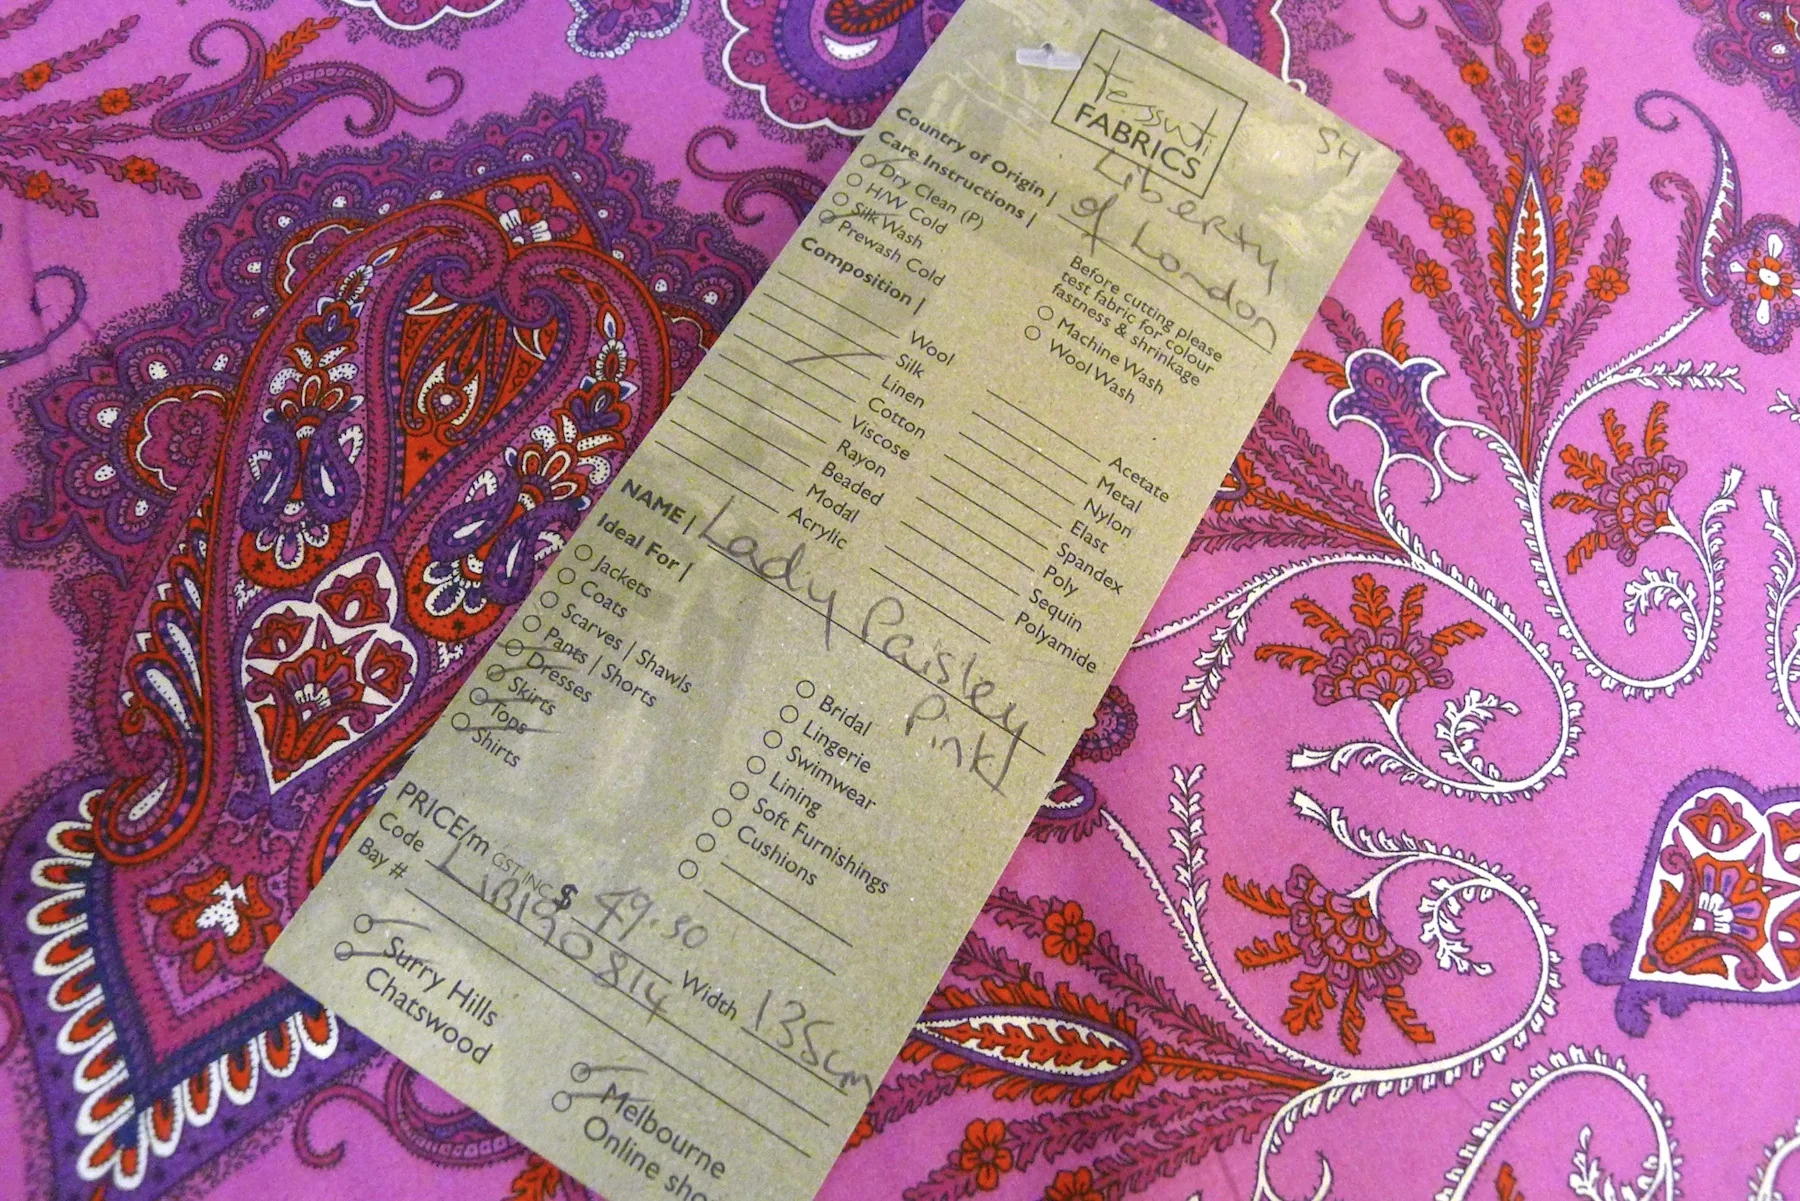 tessuti
FABRICS
SH
Country of Origin | Liberty
of London
Care Instructions |
Dry Clean (P)
H/W Cold
Silk Wash
Prewash Cold
Before cutting please
test fabric for colour
fastness & shrinkage
Machine Wash
Wool Wash
Composition |
Wool
Silk
Linen
Cotton
Viscose
Rayon
Beaded
Modal
Acrylic
Acetate
Metal
Nylon
Elast
Spandex
Poly
Sequin
Polyamide
NAME | Lady Paisley
Pink
Ideal For |
Jackets
Coats
Scarves | Shawls
Pants | Shorts
Dresses
Skirts
Tops
Shirts
Bridal
Lingerie
Swimwear
Lining
Soft Furnishings
Cushions
PRICE/m GST INC $ 49.50
Code LIB190814 Width 135cm
Bay #
Surry Hills
Chatswood
Melbourne
Online sho